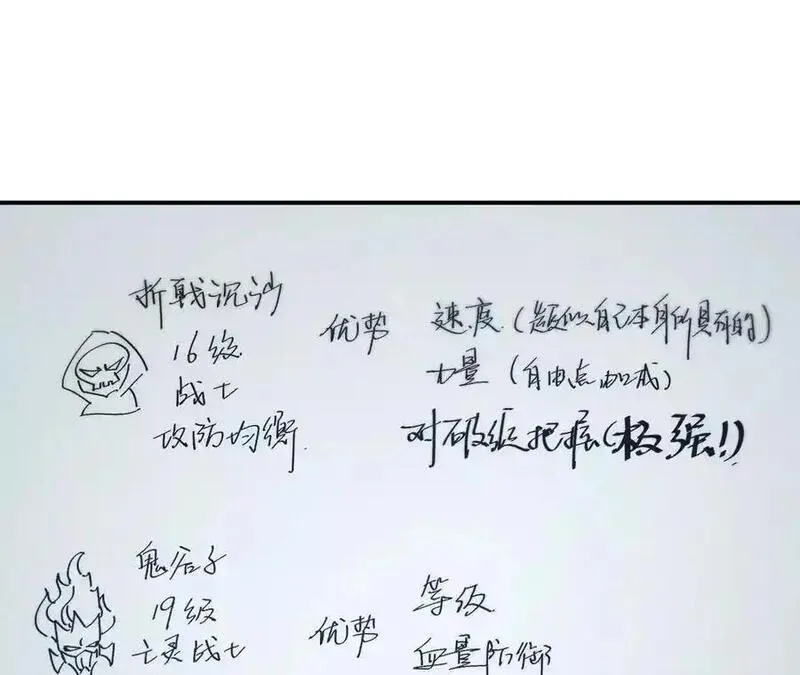 折戟沉沙
16级
战士
攻防均衡
优势
速度(疑似自己本身所具有的)
力量(自由点加成)
对破绽把握(极强!)
鬼谷子
19级
亡灵战士
优势
等级
血量防御